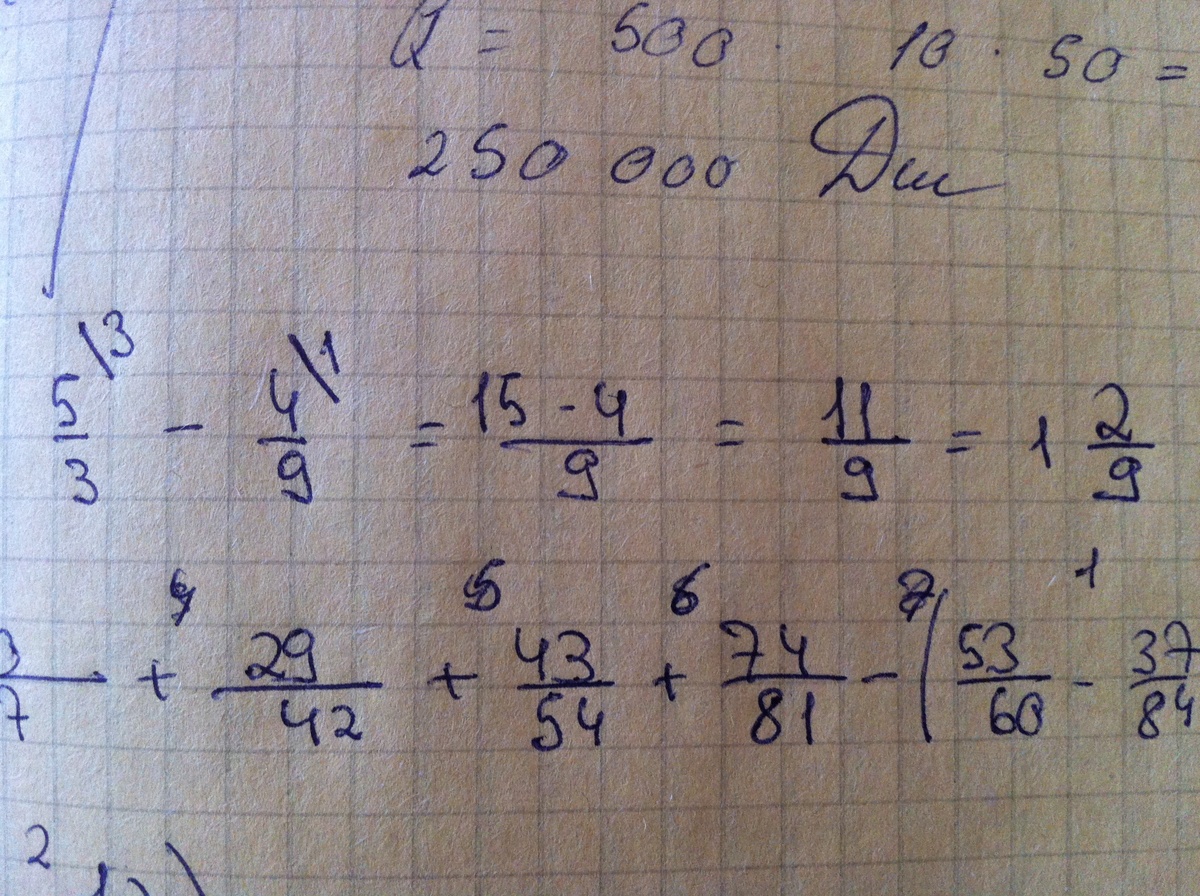 Q = 500 · 10 · 50 =
250 000 Дж
5/3 \3 - 4/9 \1 = 15 - 4/9 = 11/9 = 1 2/9
4 5 6 7 1
3/7 + 29/42 + 43/54 + 74/81 - ( 53/60 - 37/84
2